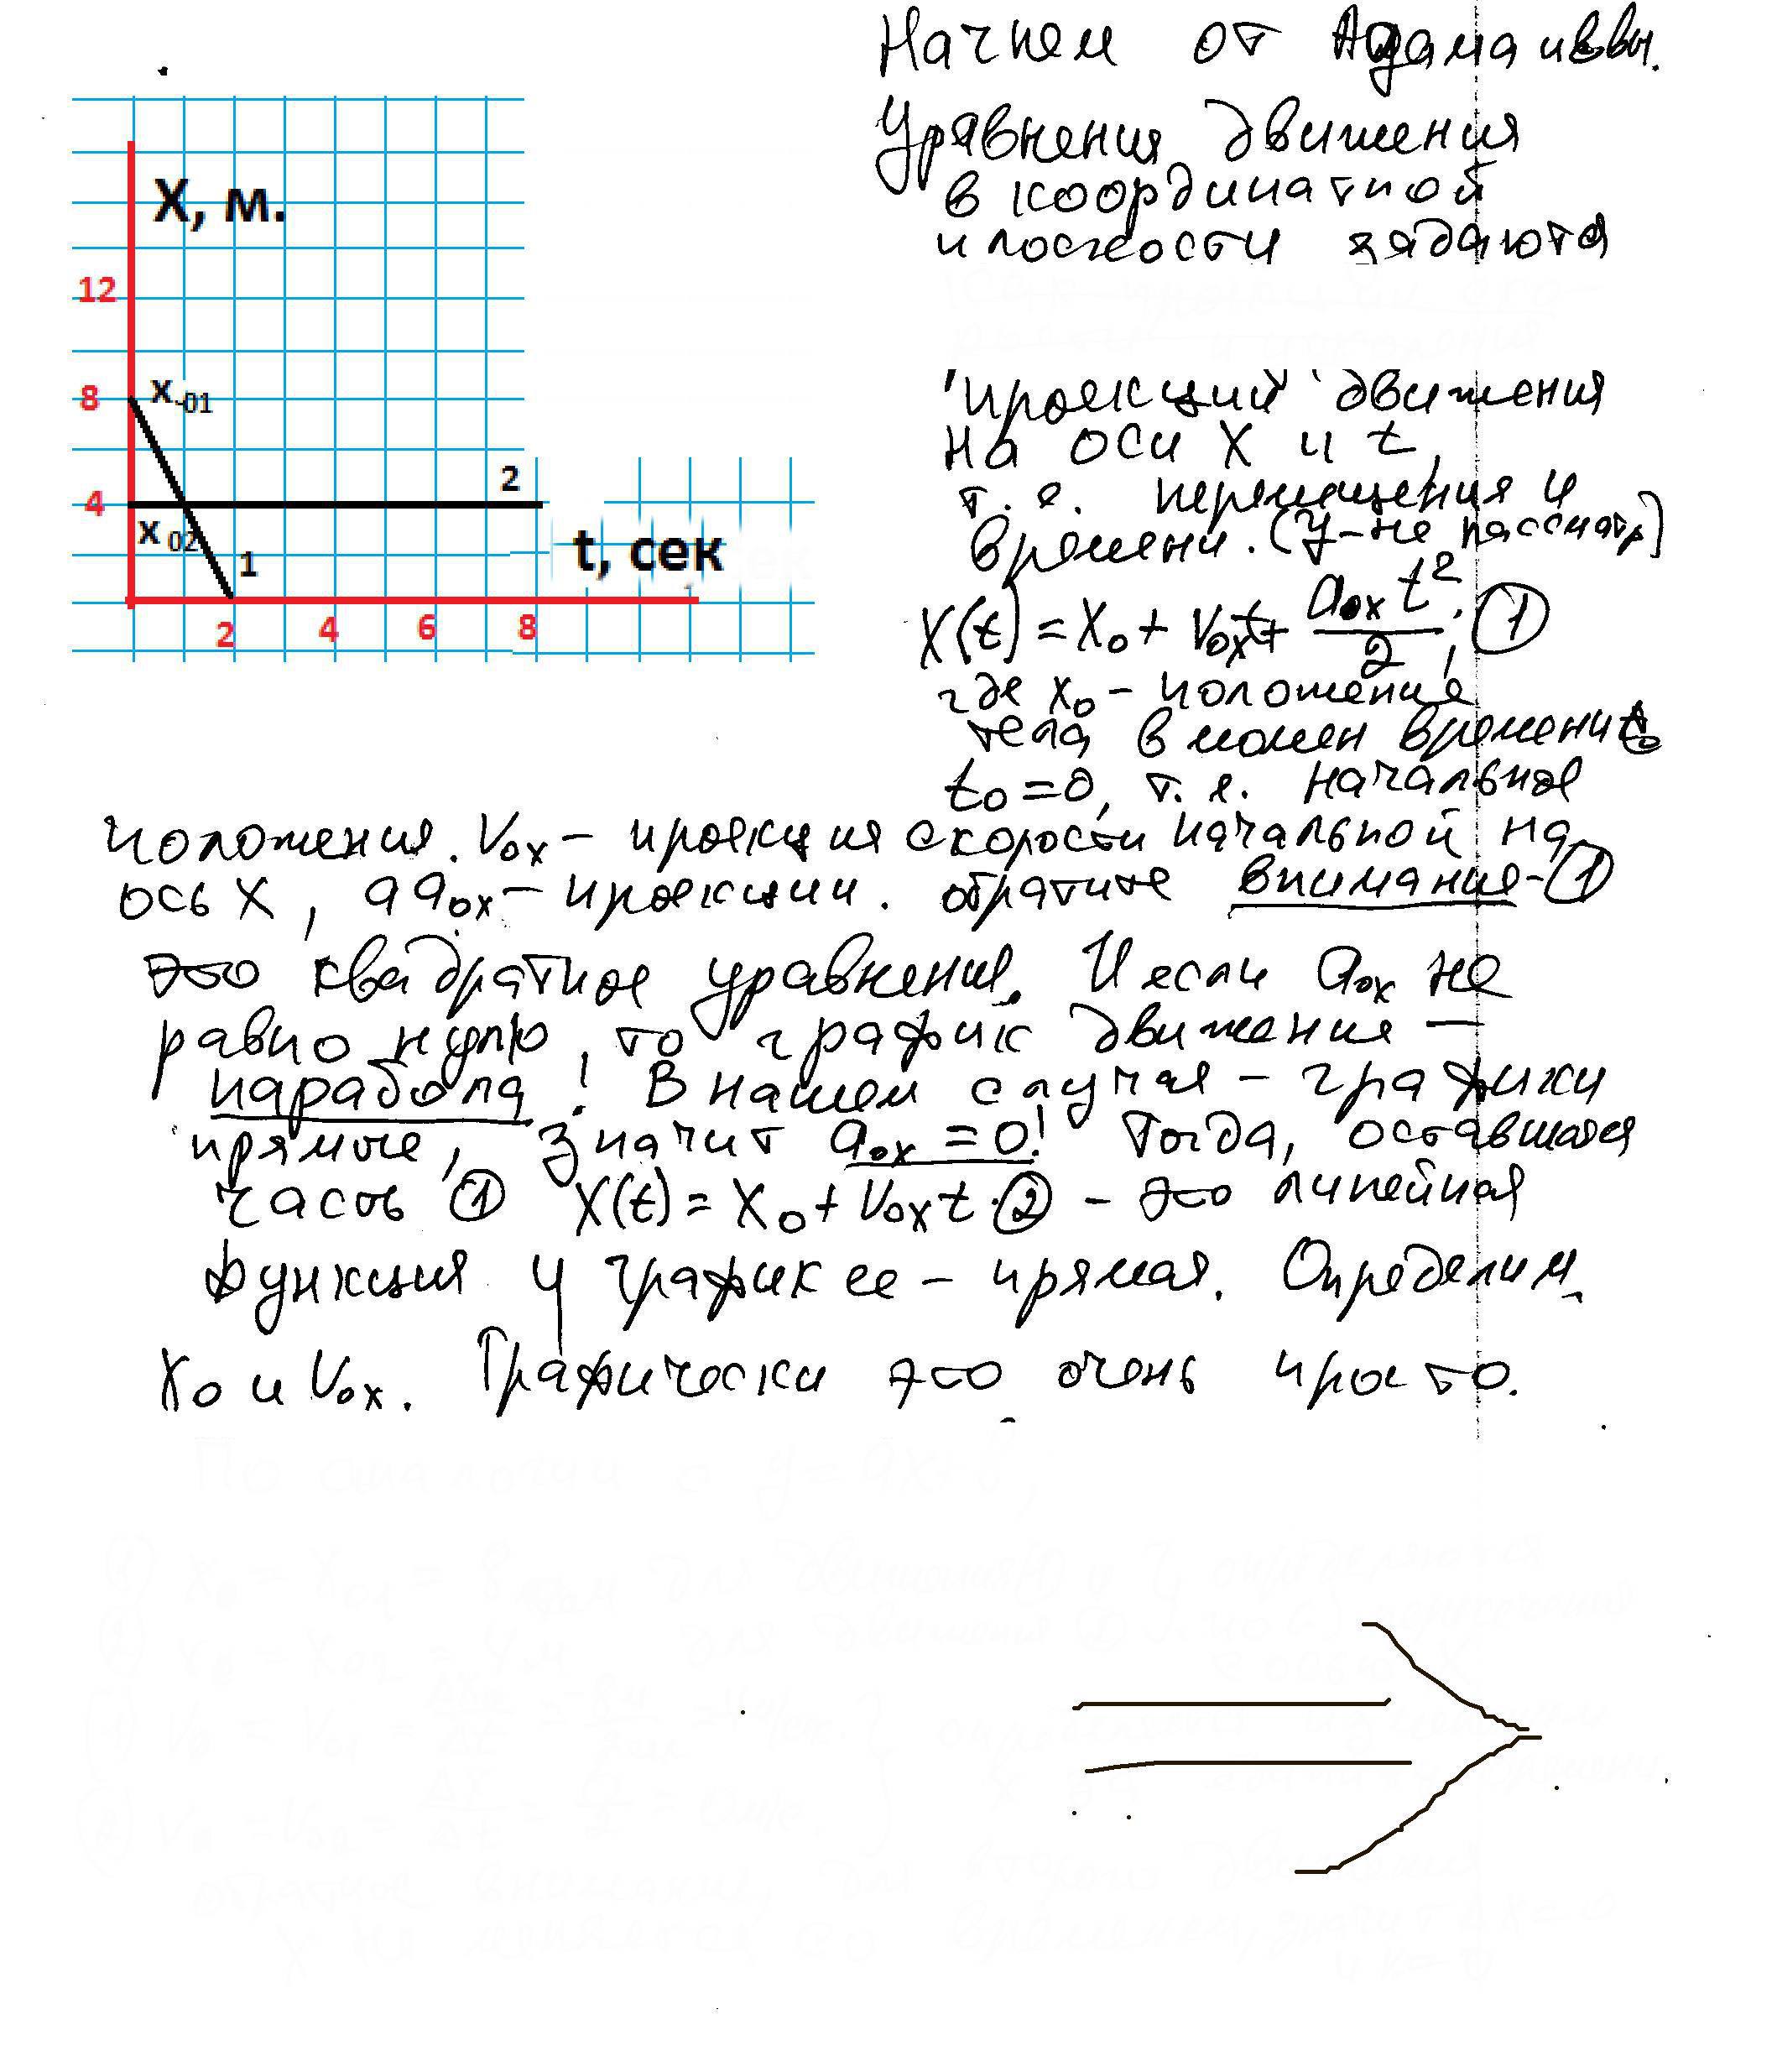 Начнем от Адама и Евы.
Уравнения движения
в координатной
плоскости задаются
проекций движения
на оси X и t,
т. е. перемещения и
времени. (У-не рассматр)
X(t) = X₀ + V₀ₓt + a₀ₓt²/2; ①
где x₀ - положение
тела в момен времени t₀
t₀ = 0, т. е. начальное
положения. V₀ₓ - проекция скорости начальной на
ось X, а a₀ₓ - проекции. обратите внимание - ①
это квадратное уравнение. И если a₀ₓ не
равно нулю, то график движения —
парабола! В нашем случае - графики
прямые, значит a₀ₓ = 0! Тогда, оставшаяся
часть ① X(t) = X₀ + V₀ₓt ② - это линейная
функция и график ее - прямая. Определим
X₀ и V₀ₓ. Графически это очень просто.
X, м.
12
8
X-01
4
2
X 02
1
t, сек
2 4 6 8